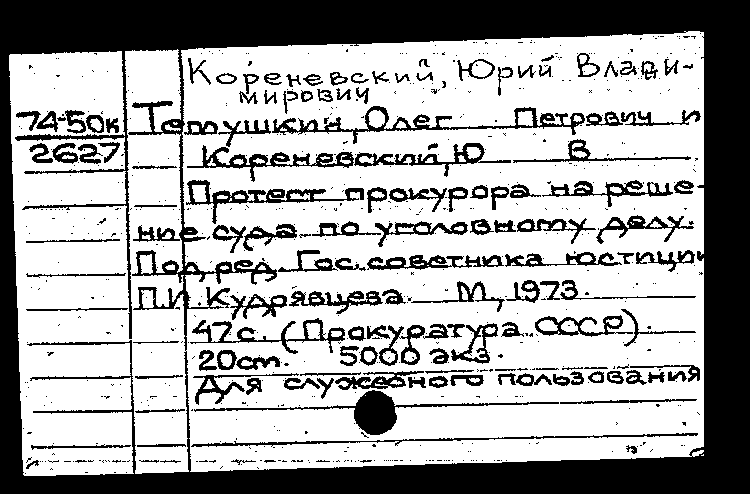 Кореневский, Юрий Влади-
мирович
74-50к Теплушкин, Олег Петрович и
2627 Кореневский, Ю В
Протест прокурора на реше-
ние суда по уголовному делу.
Под ред. Гос. советника юстиции
П.И. Кудрявцева. М., 1973.
47 с. (Прокуратура СССР).
20 cm. 5000 экз.
Для служебного пользования